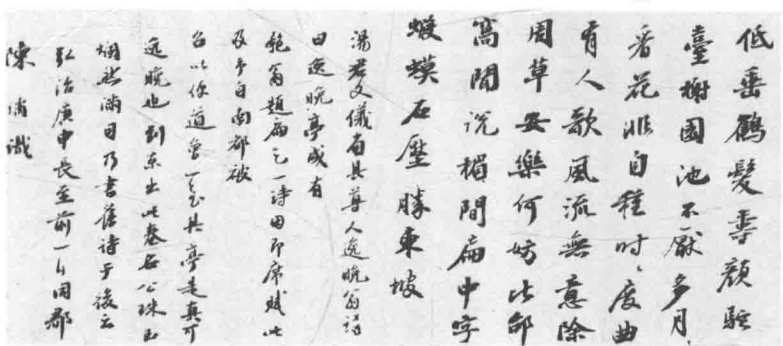 低垂鶴髮壽顏酡
臺榭園池不厭多月
看花非自種時、度曲
有人歌風流無意除
周草安樂何妨比邵
窩閒說楣間扁中字
蝦蟆石壓勝東坡
湯君文儀省其尊人逸晚翁
曰逸晚亭成有
匏翁題扁乞一詩因即席賦此
及予自南都被
召以便道登其亭是真可
逸晚也到京出此卷名公珠玉
爛然滿目乃書舊詩于後云
弘治庚申長至前一日同郡
陳璚識